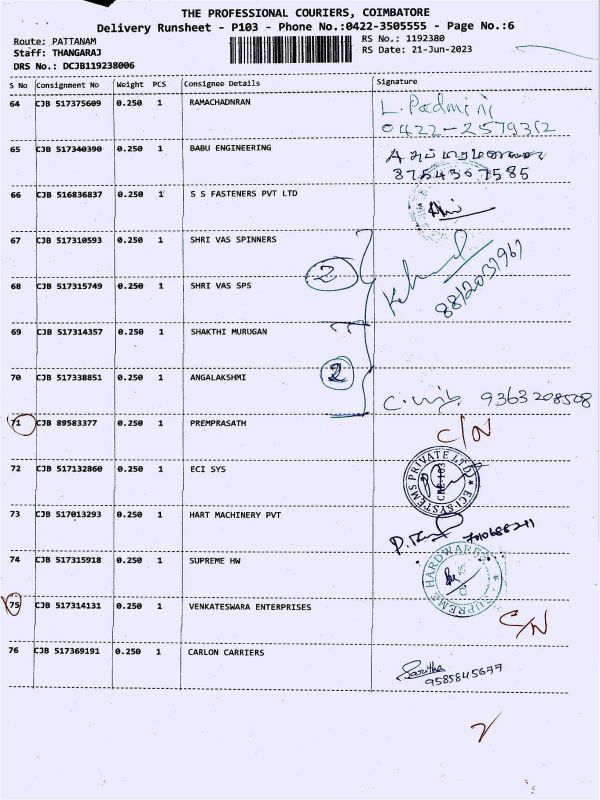 THE PROFESSIONAL COURIERS, COIMBATORE
Delivery Runsheet - P103 - Phone No.:0422-3505555 - Page No.:6
Route: PATTANAM
Staff: THANGARAJ
DRS No.: DCJB119238006
RS No.: 1192380
RS Date: 21-Jun-2023
S No Consignment No Weight PCS Consignee Details Signature
64 CJB 517375609 0.250 1 RAMACHADNRAN L. Padmini
0422-2579312
65 CJB 517340390 0.250 1 BABU ENGINEERING
8754367585
66 CJB 516836837 0.250 1 S S FASTENERS PVT LTD
67 CJB 517310593 0.250 1 SHRI VAS SPINNERS
2
68 CJB 517315749 0.250 1 SHRI VAS SPS
69 CJB 517314357 0.250 1 SHAKTHI MURUGAN
2
70 CJB 517338851 0.250 1 ANGALAKSHMI 9363208508
71 CJB 89583377 0.250 1 PREMPRASATH C/N
72 CJB 517132860 0.250 1 ECI SYS
ECI SYSTEMS PRIVATE LTD
73 CJB 517013293 0.250 1 HART MACHINERY PVT
74 CJB 517315918 0.250 1 SUPREME HW
SUPREME HARDWARES
75 CJB 517314131 0.250 1 VENKATESWARA ENTERPRISES C/N
76 CJB 517369191 0.250 1 CARLON CARRIERS Saritha
9585845677
2